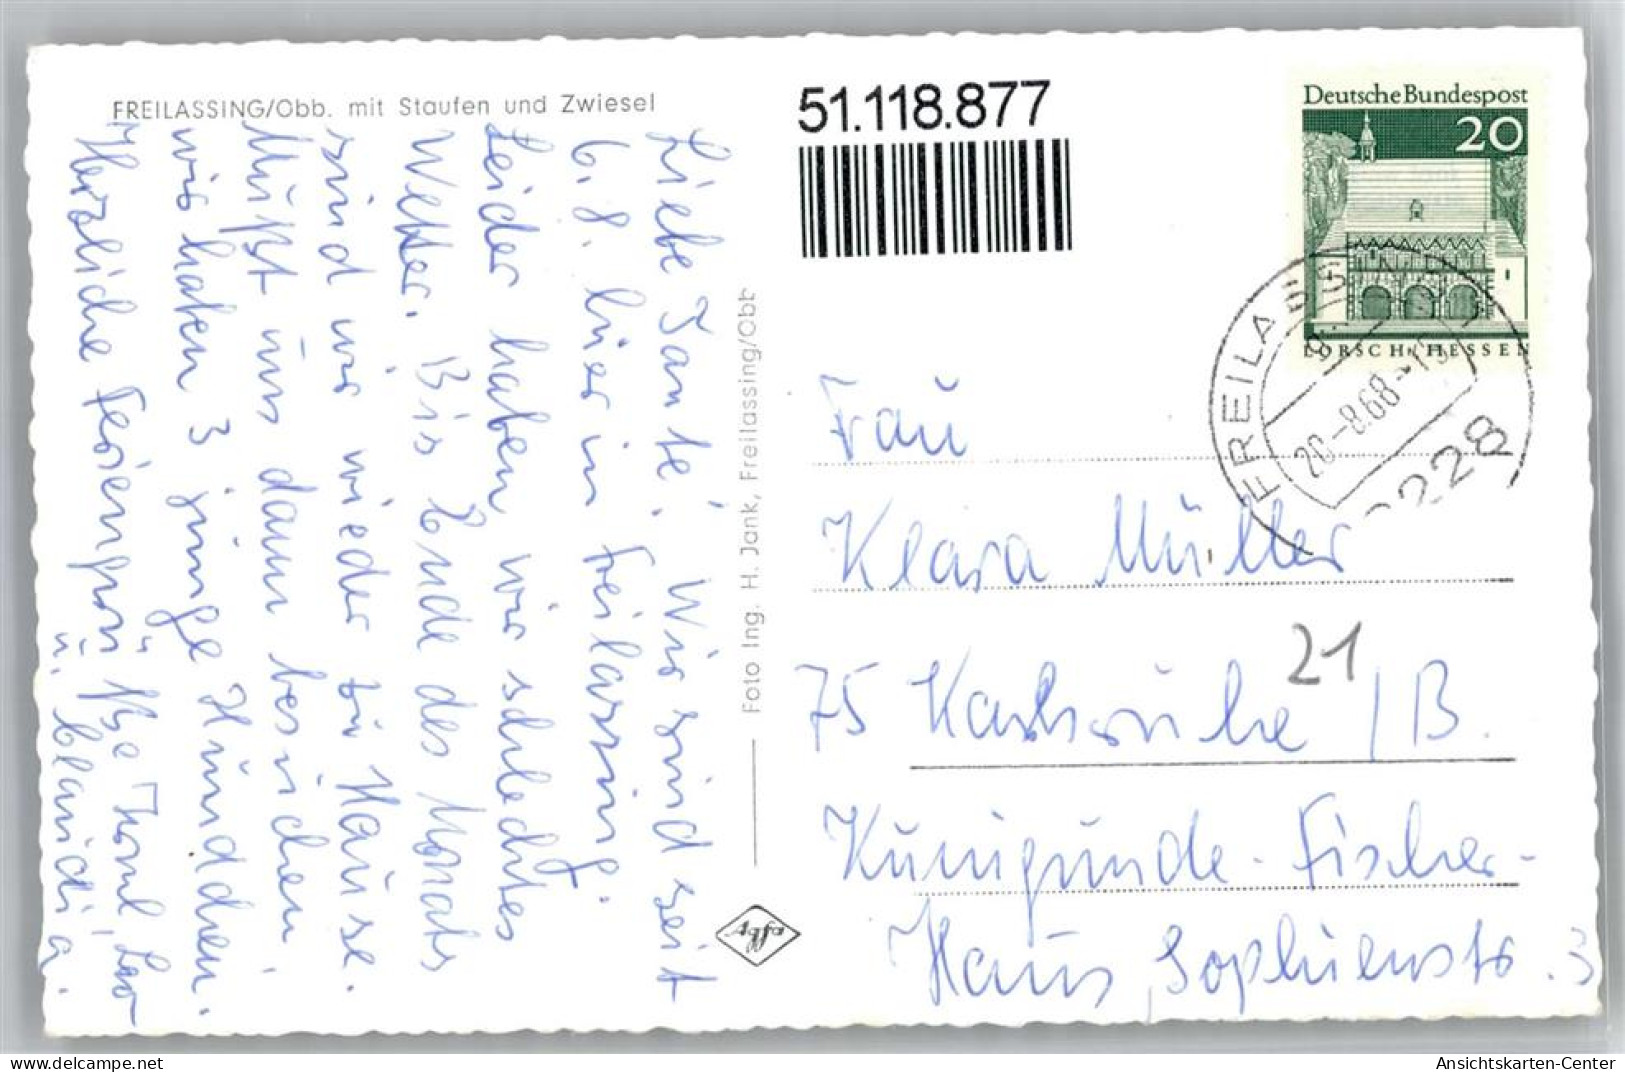 FREILASSING/Obb. mit Staufen und Zwiesel
Liebe Tante! Wir sind seit
6.8. hier in Freilassing.
Leider haben wir schlechtes
Wetter. Bis Ende des Monats
sind wir wieder zu Hause.
Mußt uns dann besuchen,
wir haben 3 junge Hündchen.
Herzliche Feriengrüße
u. Claudia.
Foto Ing. H. Jank, Freilassing/Obb
Agfa
51.118.877
Deutsche Bundespost
20
LORSCH/HESSEN
FREILASSING
20.-8.68
8228
Frau
Klara Müller
21
75 Karlsruhe /B.
Kunigunde-Fischer-
Haus, Sophienstr. 3
www.oldthing.net
Ansichtskarten-Center